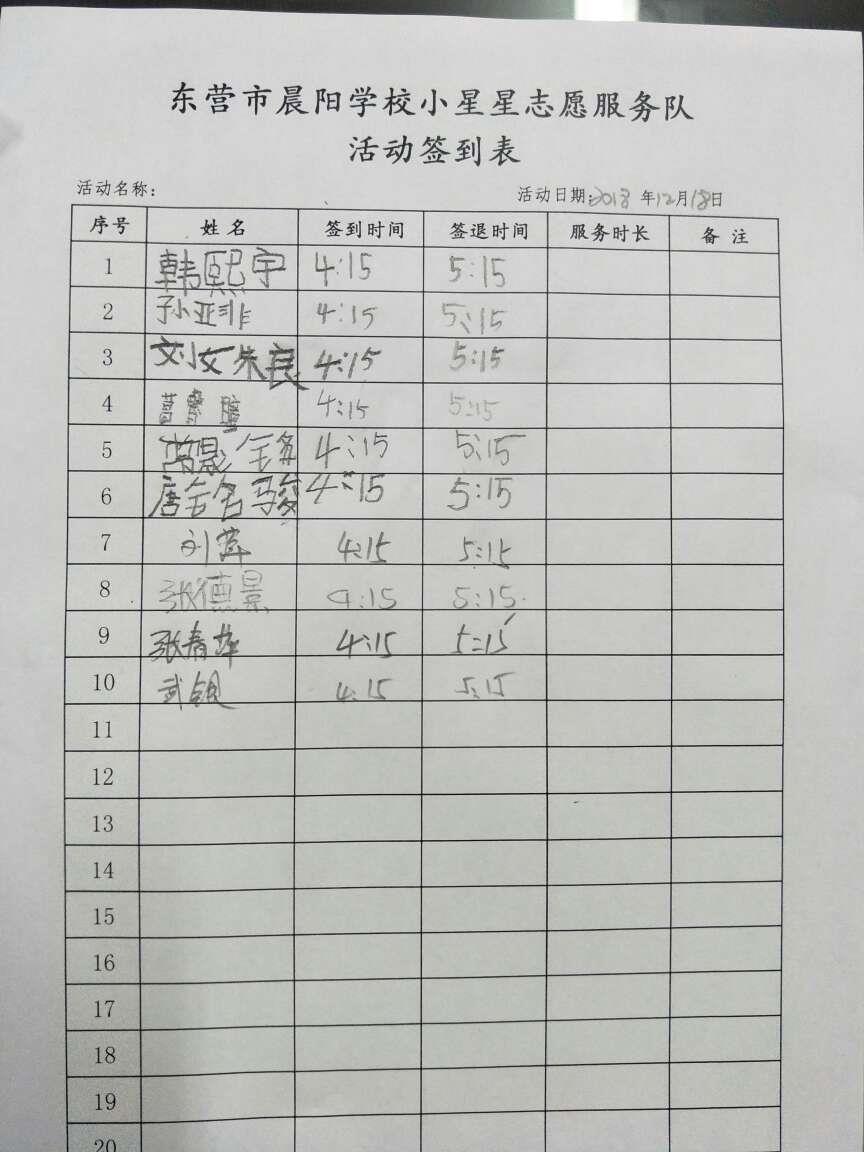 东营市晨阳学校小星星志愿服务队
活动签到表
活动名称: 活动日期:2018年12月18日
序号 姓名 签到时间 签退时间 服务时长 备注
1 韩熙宇 4:15 5:15
2 孙亚菲 4:15 5:15
3 刘姝良 4:15 5:15
4 4:15 5:15
5 4:15 5:15
6 唐铭骏 4:15 5:15
7 刘萍 4:15 5:15
8 张德景 4:15 5:15
9 张春华 4:15 5:15
10 武银 4:15 5:15
11
12
13
14
15
16
17
18
19
20